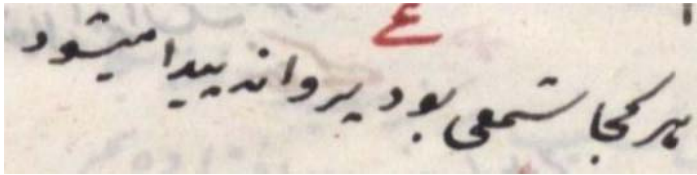 ع
هر کجا شمعی بود پروانه پیدا میشود